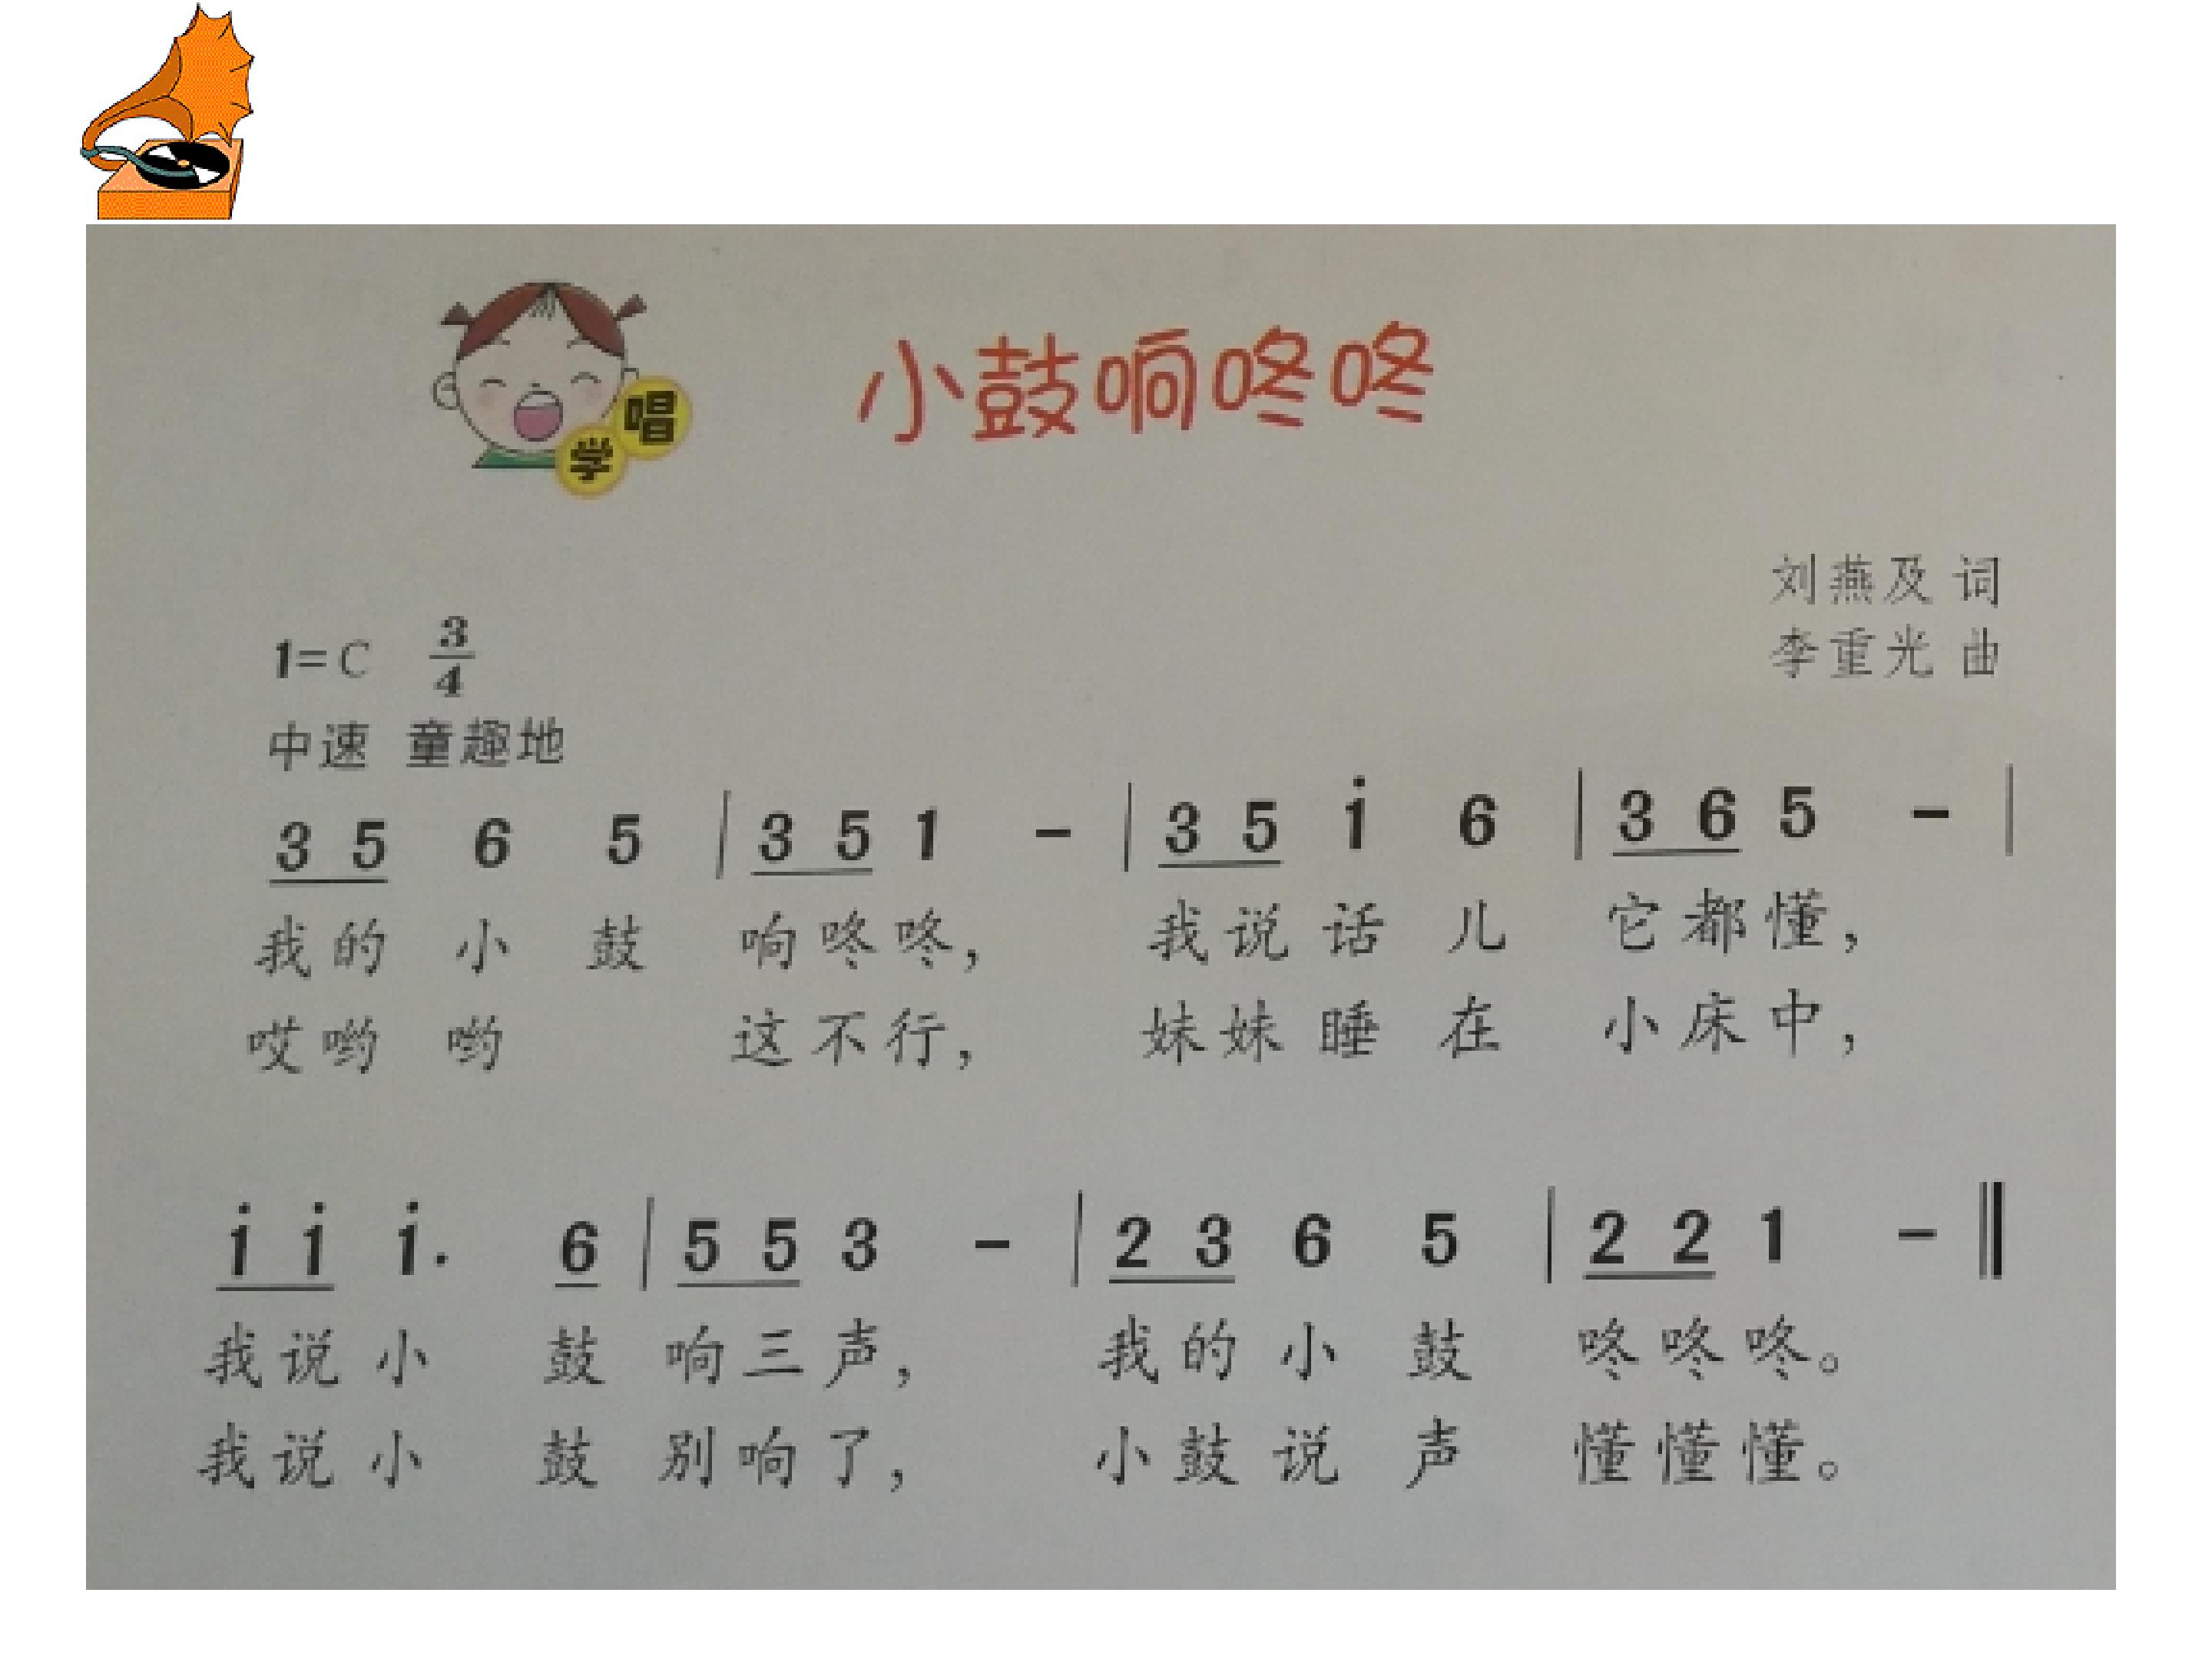 小鼓响咚咚
学唱
刘燕及 词
李重光 曲
1=C 3/4
中速 童趣地
3 5 6 5 | 3 5 1 - | 3 5 i 6 | 3 6 5 - |
我的 小 鼓 响咚咚, 我说话 儿 它都懂,
哎哟 哟 这不行, 妹妹睡 在 小床中,
i i i· 6 | 5 5 3 - | 2 3 6 5 | 2 2 1 - ‖
我说小 鼓 响三声, 我的小 鼓 咚咚咚。
我说小 鼓 别响了, 小鼓说 声 懂懂懂。